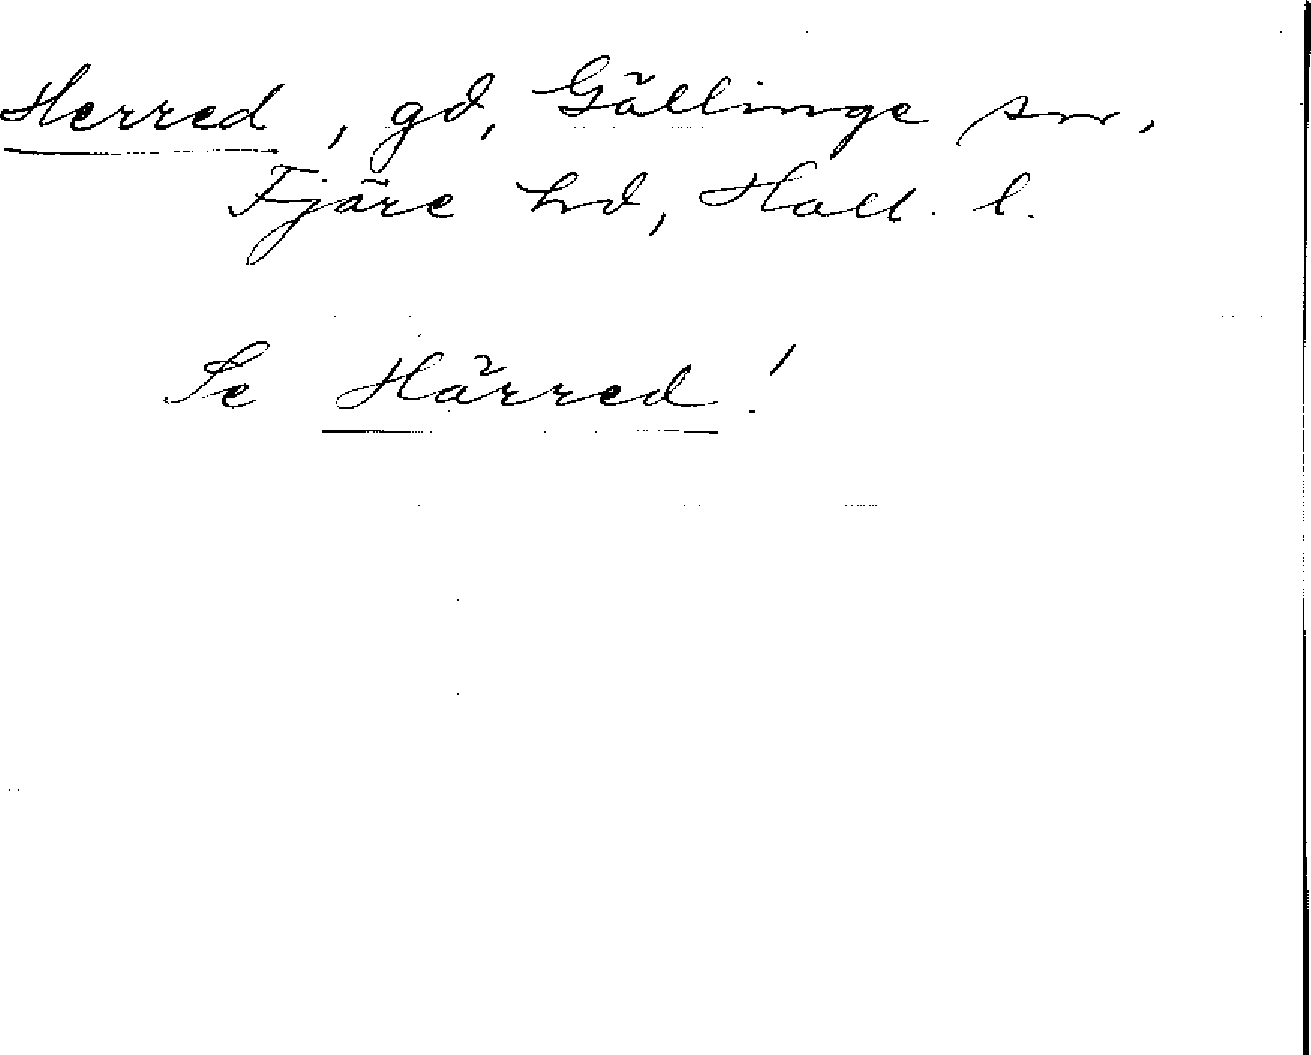 Herred, gd, Gällinge sn,
Fjäre hd, Hall. l.
Se Härred!